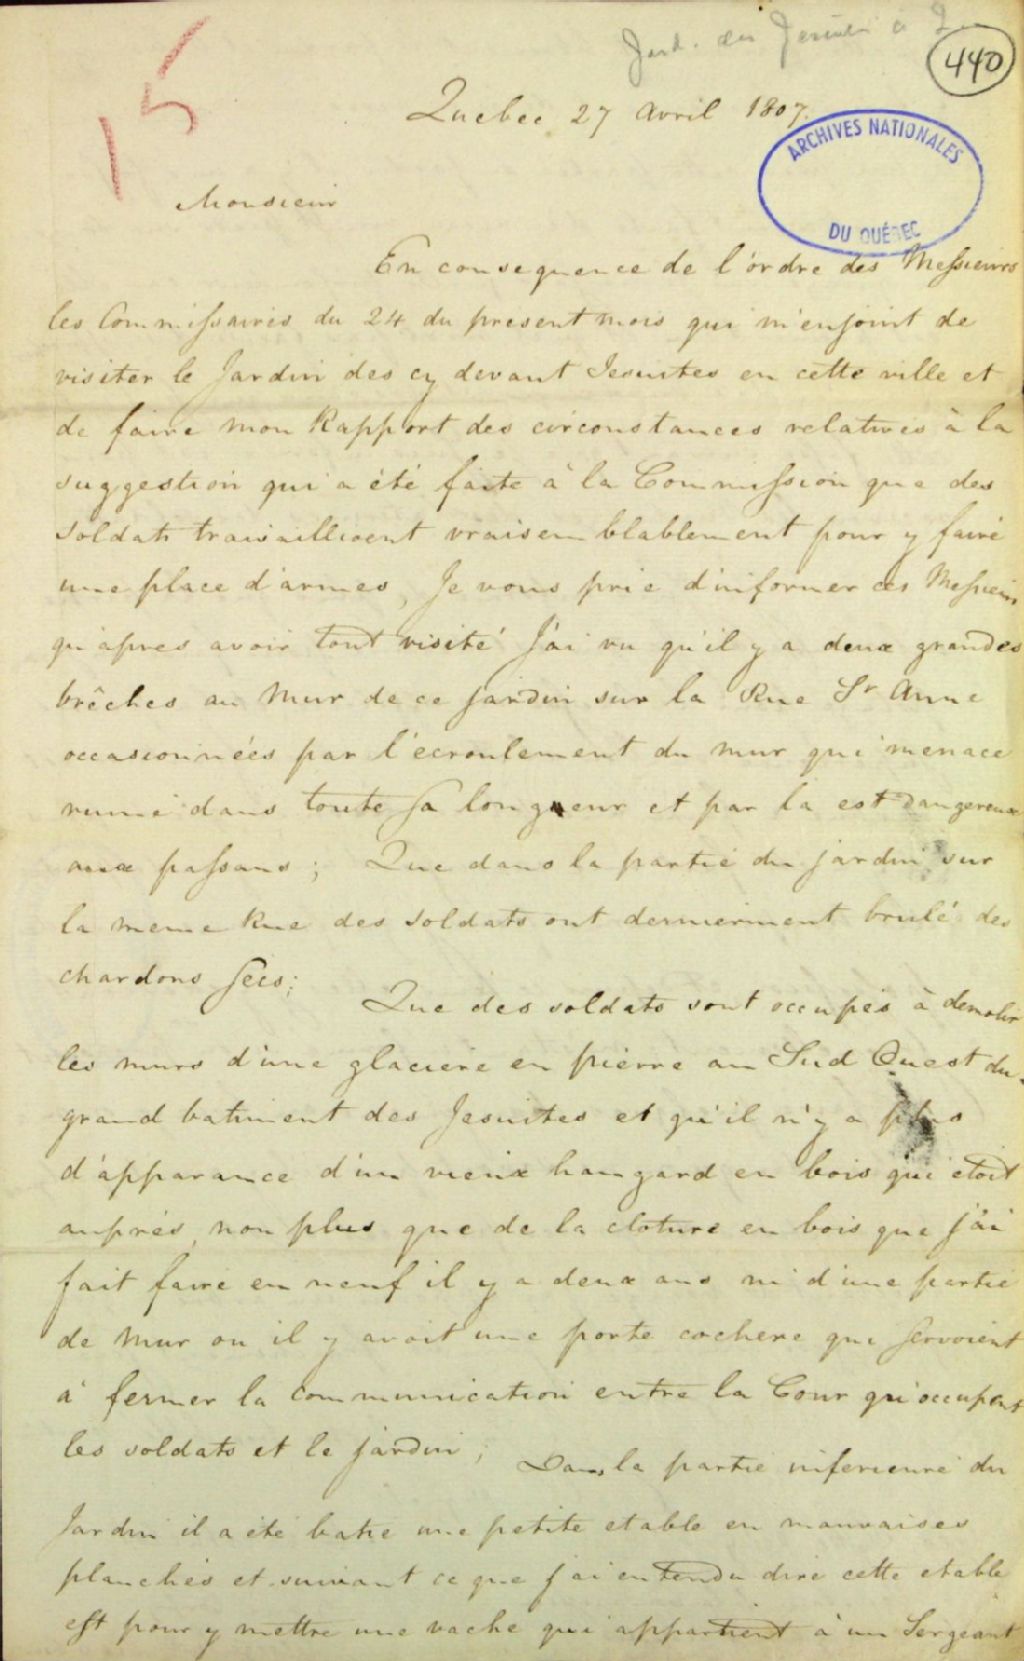 Jard. des Jesuites à
440
15
Quebec 27 Avril 1807.
ARCHIVES NATIONALES
DU QUÉBEC
Monsieur
En consequence de l'ordre des Messieurs
les Commissaires du 24 du present mois qui m'enjoint de
visiter le Jardin des cy devant Jesuites en cette ville et
de faire mon Rapport des circonstances relatives à la
suggestion qui a été faite à la Commission que des
soldats travailloient vraisemblablement pour y faire
une place d'armes, Je vous prie d'informer ces Messieurs
qu'apres avoir tout visité J'ai vu qu'il y a deux grandes
brêches au Mur de ce jardin sur la Rue St Anne
occasionnées par l'écroulement du mur qui menace
ruine dans toute sa longueur et par la est dangereux
aux passans ; Que dans la partie du jardin sur
la meme Rue des soldats ont dernierment brulé des
chardons secs;
Que des soldats sont occupés à demolir
les murs d'une glaciere en pierre au Sud Ouest du
grand batiment des Jesuites et qu'il n'y a plus
d'apparance d'un vieux hangard en bois qui etoit
auprés, non plus que de la cloture en bois que j'ai
fait faire en neuf il y a deux ans ni d'une partie
de Mur ou il y avoit une porte cochere qui servoient
à fermer la communication entre la Cour qu'occupent
les soldats et le jardin ;
Dans la partie inferieure du
Jardin il a été batie une petite etable en mauvaises
planches et suivant ce que j'ai entendu dire cette etable
est pour y mettre une vache qui appartient à un Sergeant